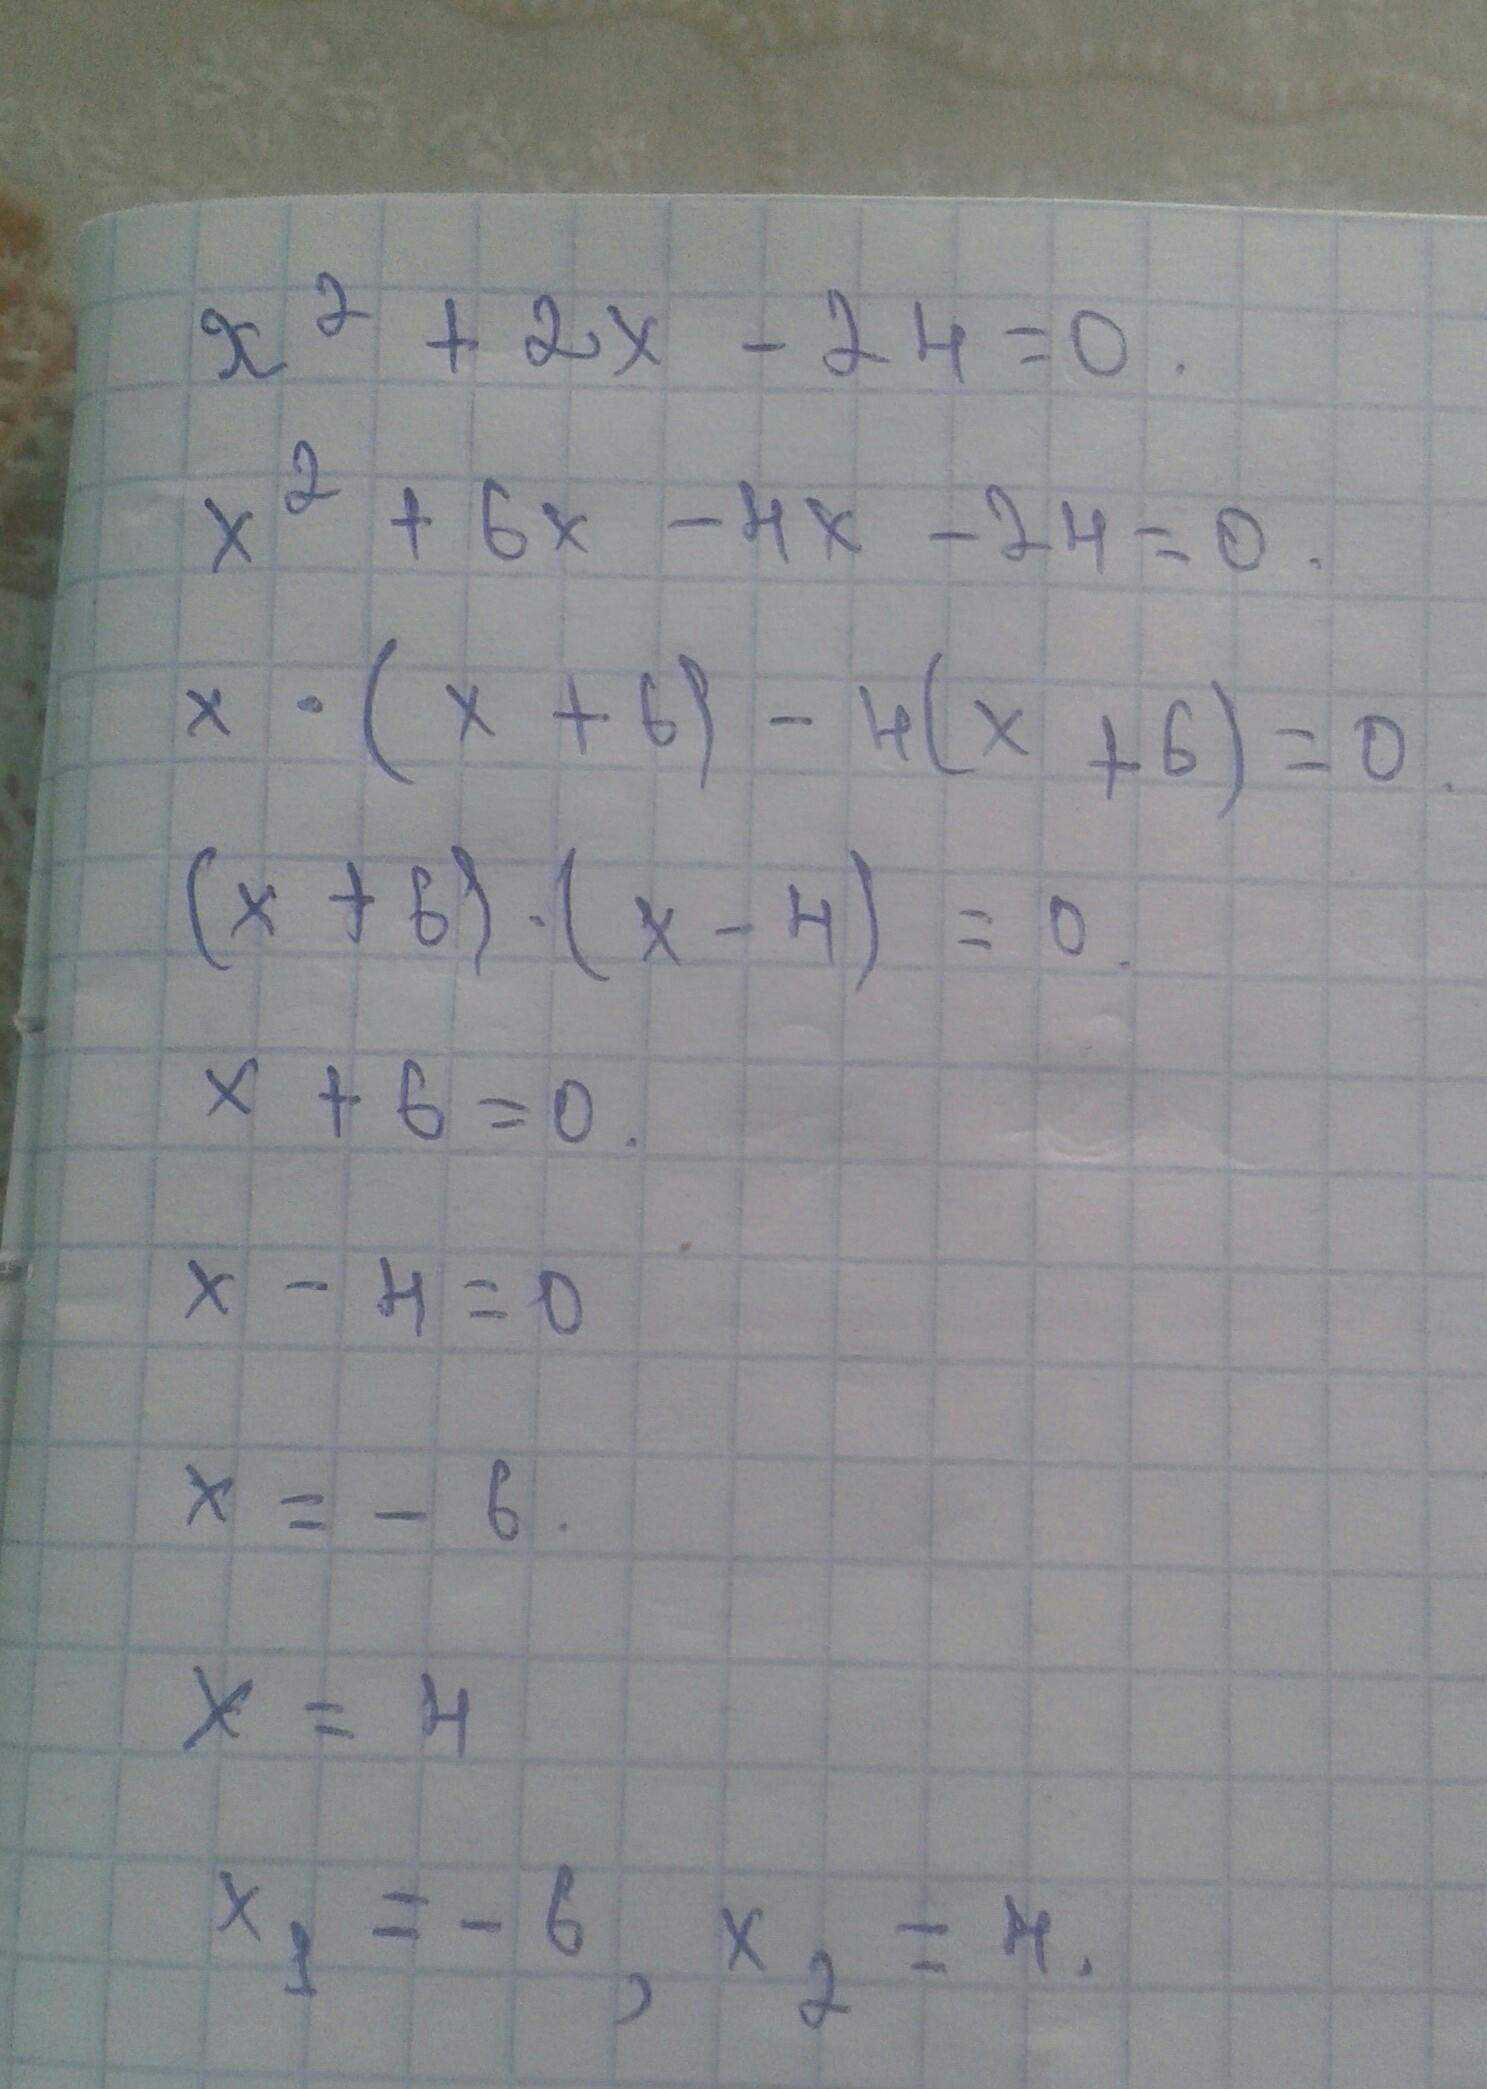 x² + 2x - 24 = 0.
x² + 6x - 4x - 24 = 0.
x · (x + 6) - 4(x + 6) = 0.
(x + 6) · (x - 4) = 0.
x + 6 = 0.
x - 4 = 0
x = - 6.
x = 4
x₁ = - 6, x₂ = 4.